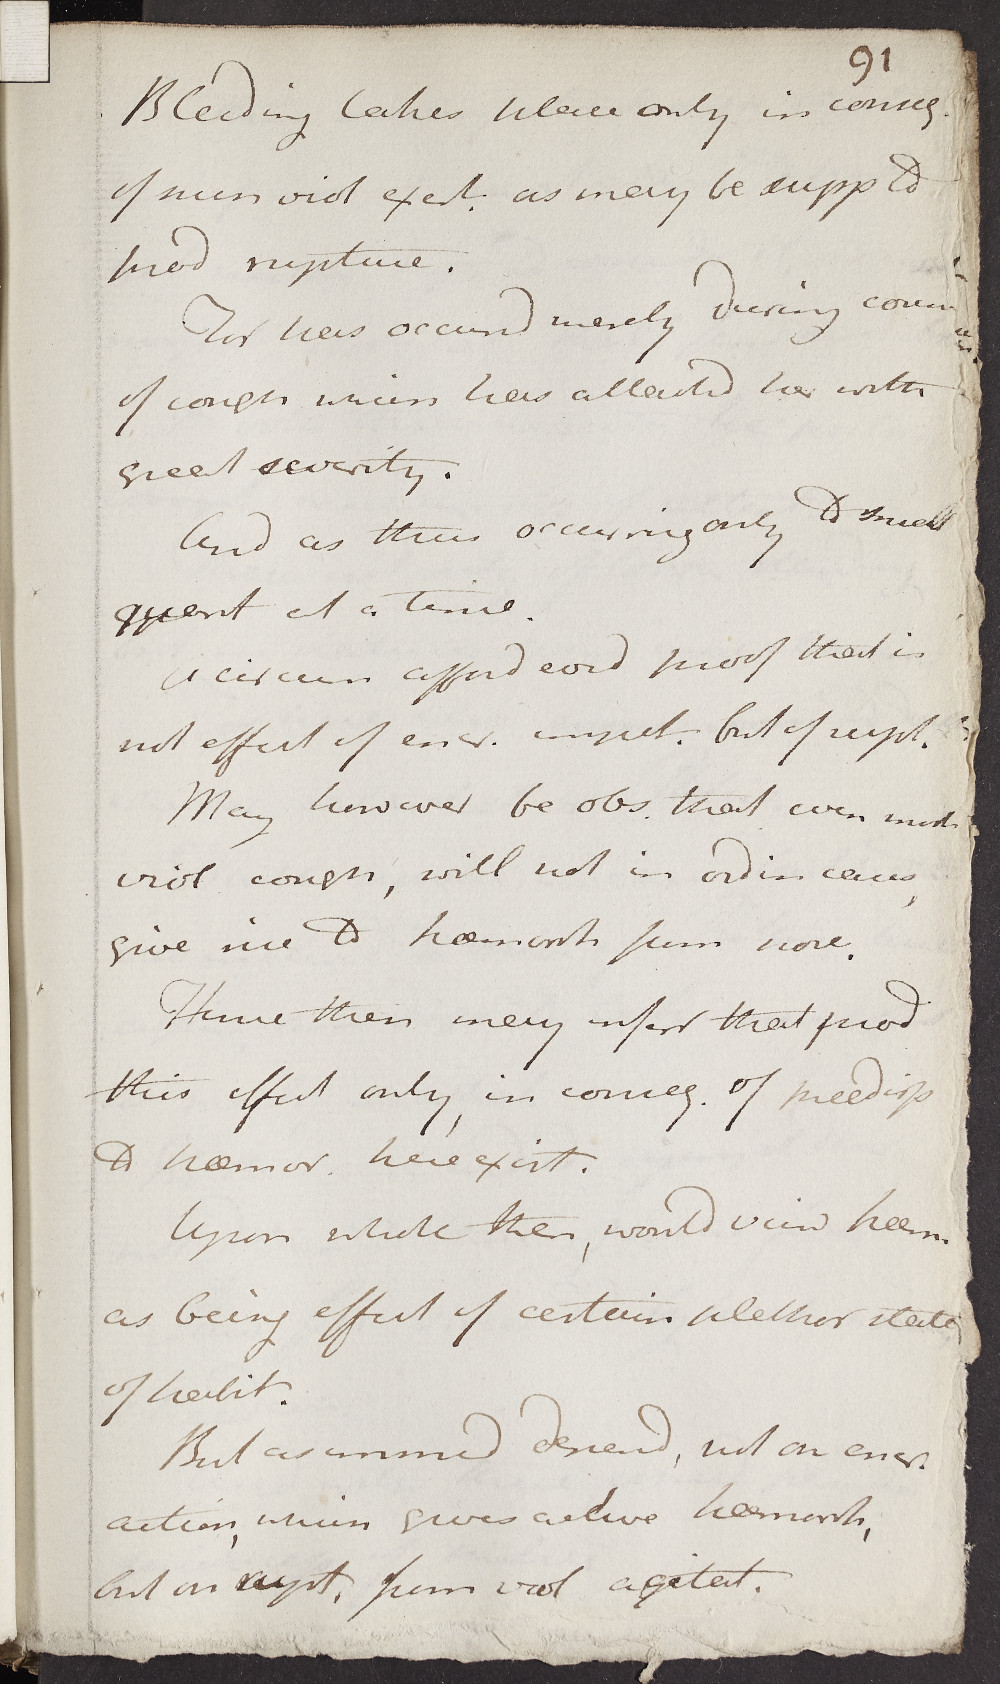 91
Bleeding takes place only in conseq.
of such viol exert. as may be supp to
prod rupture.
For has occurred merely during
of cough which has attack'd her with
great severity.
And as thus occurring only to small
quant at a time.
a circum afford evid proof that is
not effect of encr. impet. but of rupt.
May however be obs. that even most
viol cough, will not in ordin cases,
give rise to hæmorrh from nose.
Hence then may infer that prod
this effect only, in conseq. of predisp
to hæmor. here exist.
Upon whole then, would view hæm.
as being effect of certain plethor state
of habit.
But as immed depend, not on encr.
action, which gives active hæmorrh,
but on rupt, from viol agitat.